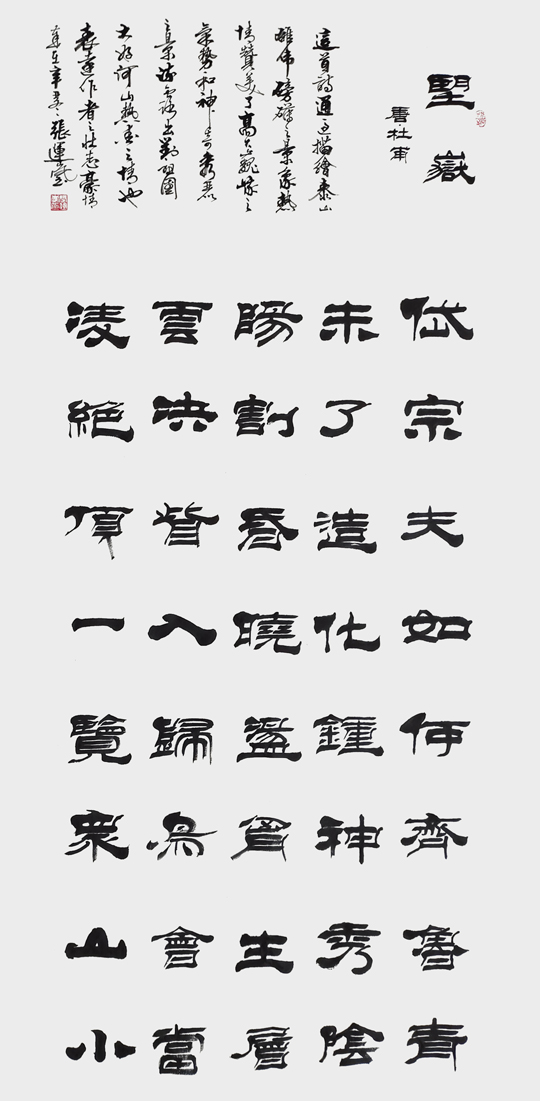 望嶽
唐·杜甫
這首詩通過描繪泰山
雄偉磅礴之景象熱
情贊美了高大巍峨之
氣勢和神奇秀麗
之景流露出對祖國
大好河山熱愛之情也
表達作者之壯志豪情
張運
岱宗夫如何齊魯青
未了造化鍾神秀陰
陽割昏曉盪胷生層
雲決眥入歸鳥會當
凌絕頂一覽眾山小